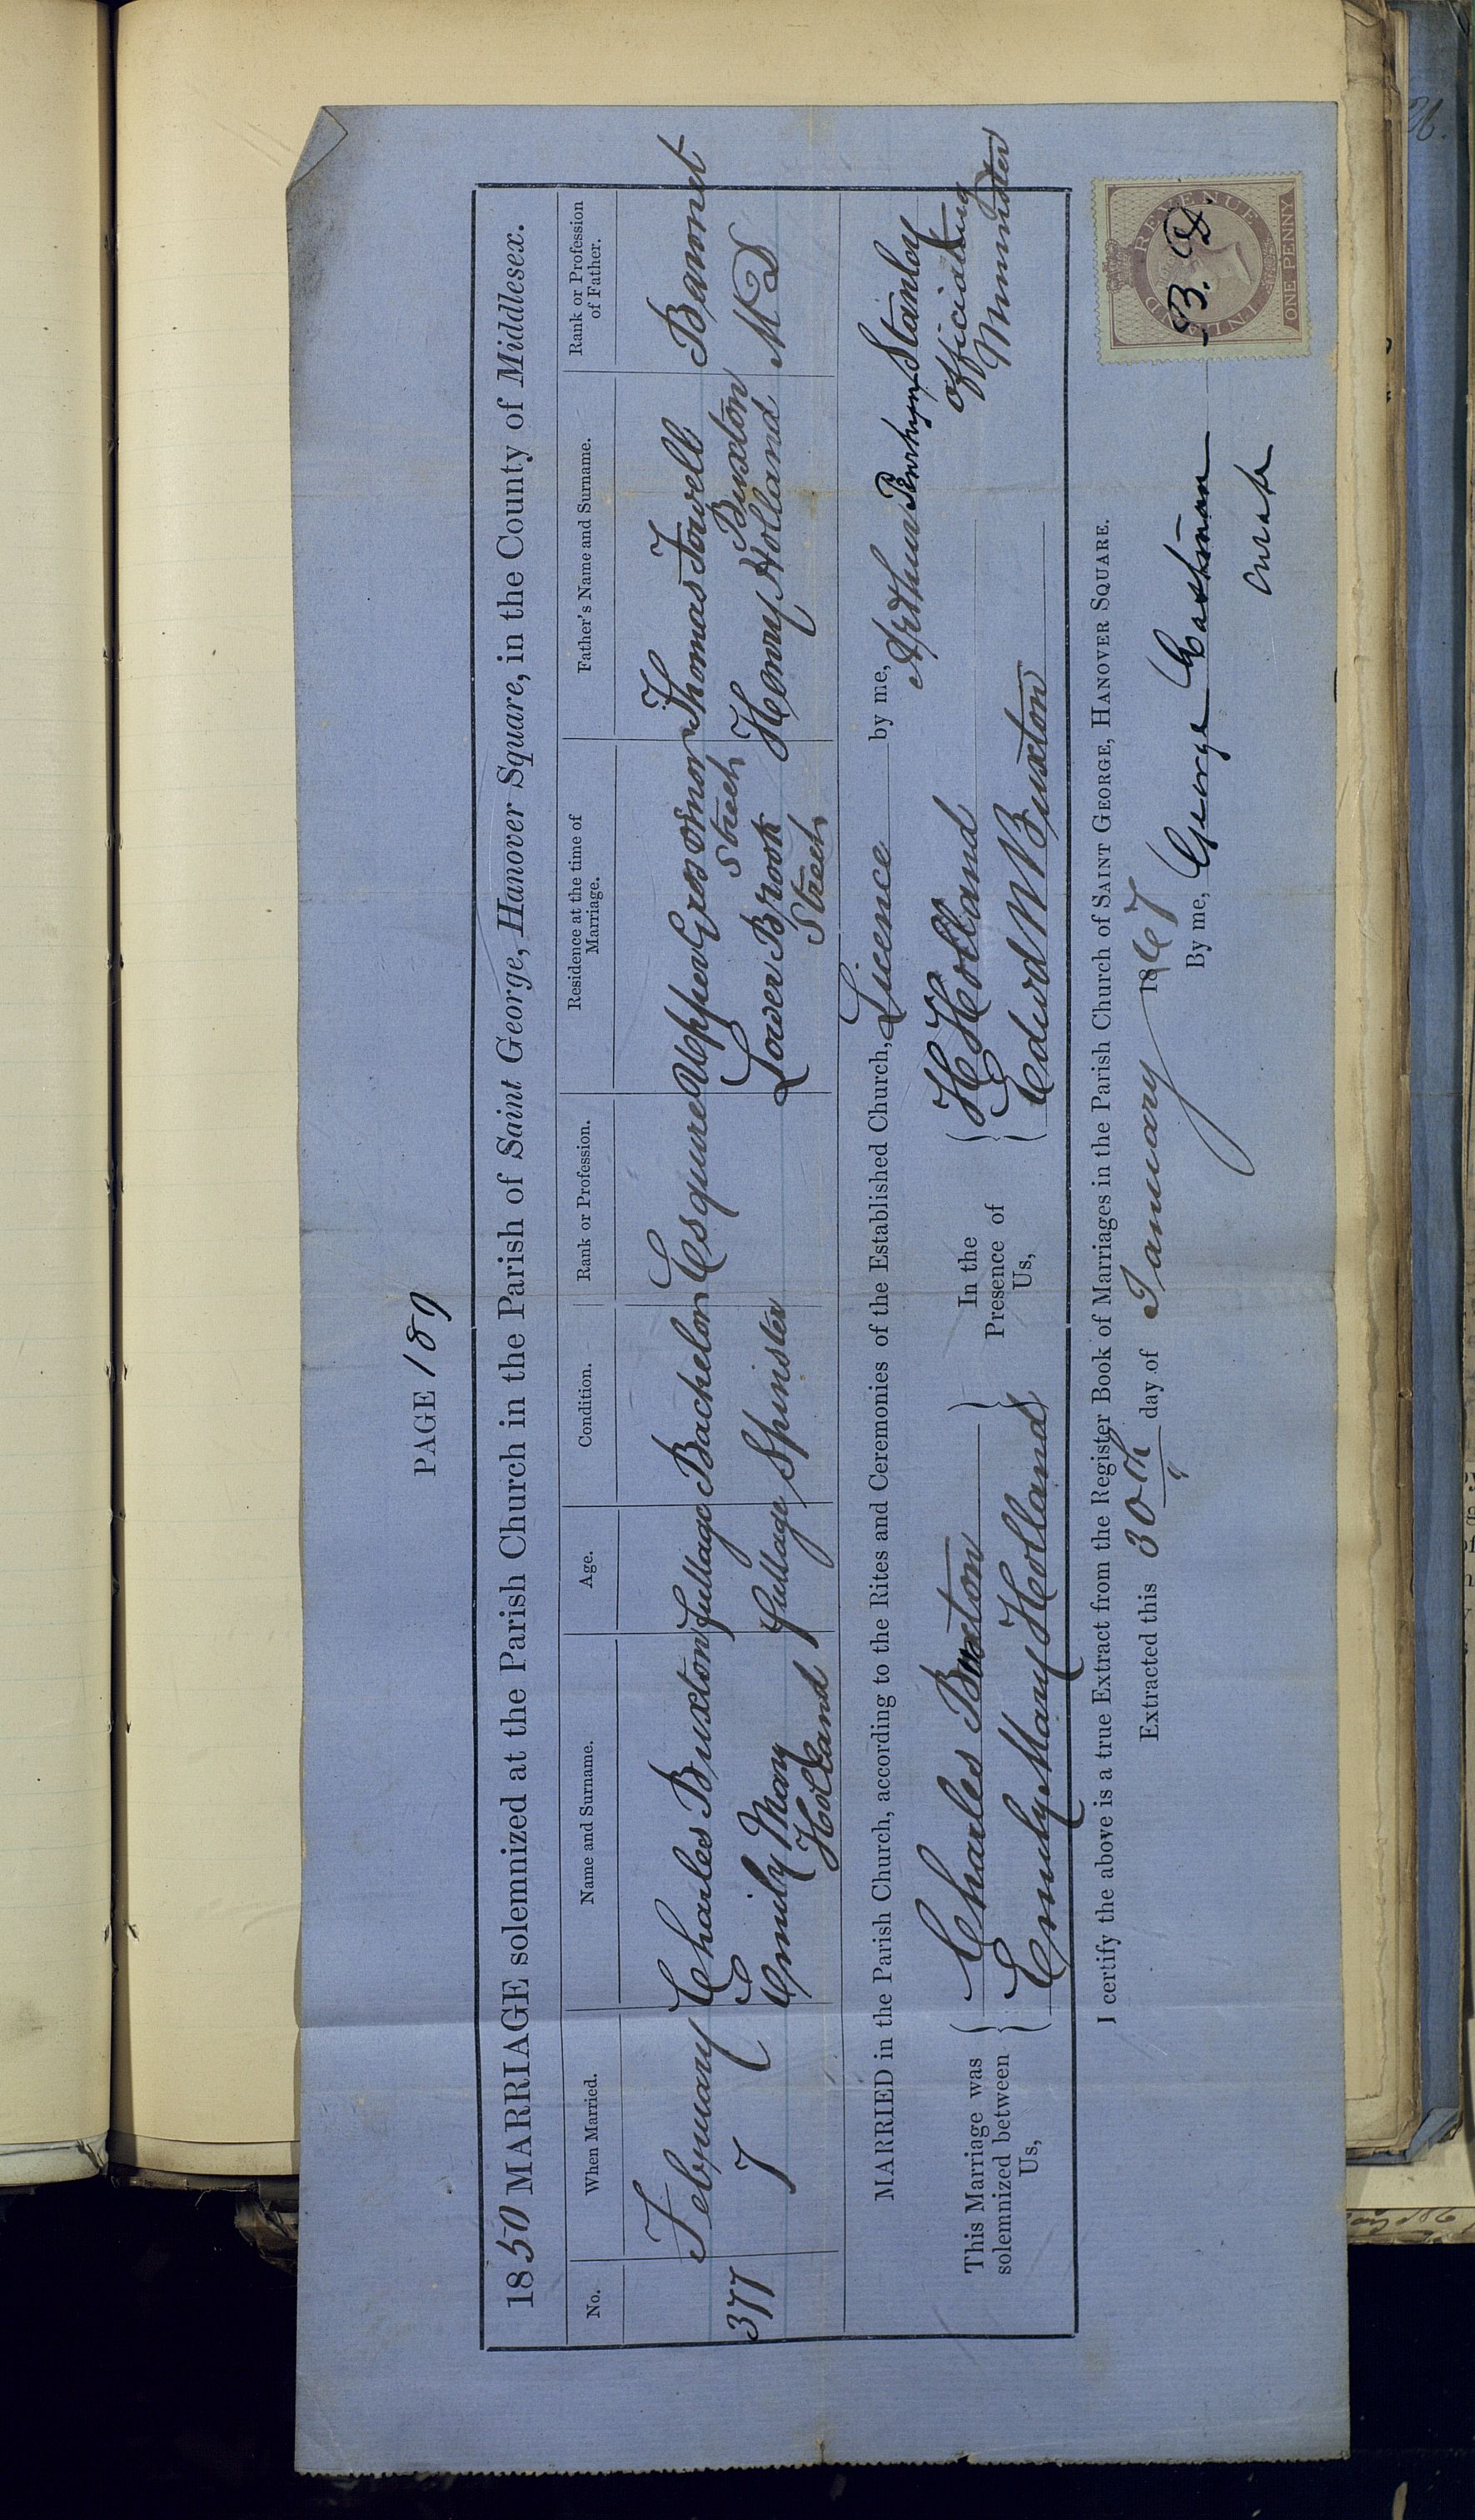 PAGE 189
1850 MARRIAGE solemnized at the Parish Church in the Parish of Saint George, Hanover Square, in the County of Middlesex.
No. When Married. Name and Surname. Age. Condition. Rank or Profession. Residence at the time of Marriage. Father's Name and Surname. Rank or Profession of Father.
377 February 7
Charles Buxton full age Bachelor Esquire Upper Grosvenor Street Thomas Fowell Buxton Baronet
Emily Mary Holland full age Spinster Lower Brook Street Henry Holland M D
MARRIED in the Parish Church, according to the Rites and Ceremonies of the Established Church, Licence by me,
Arthur Penrhyn Stanley
officiating
Minister
This Marriage was
solemnized between
Us,
Charles Buxton
Emily Mary Holland
In the
Presence of
Us,
H Holland
Edwd N Buxton
I certify the above is a true Extract from the Register Book of Marriages in the Parish Church of SAINT GEORGE, HANOVER SQUARE.
Extracted this 30th day of January 1867
By me, George Eastman
Curate
INLAND REVENUE
ONE PENNY
26.